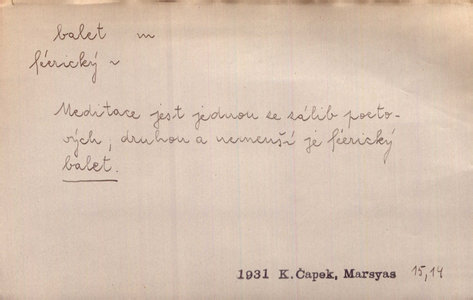 balet m
féerický ~
Meditace jest jednou se zálib poeto-
vých, druhou a nemenší je féerický
balet.
1931 K.Čapek, Marsyas 15,14